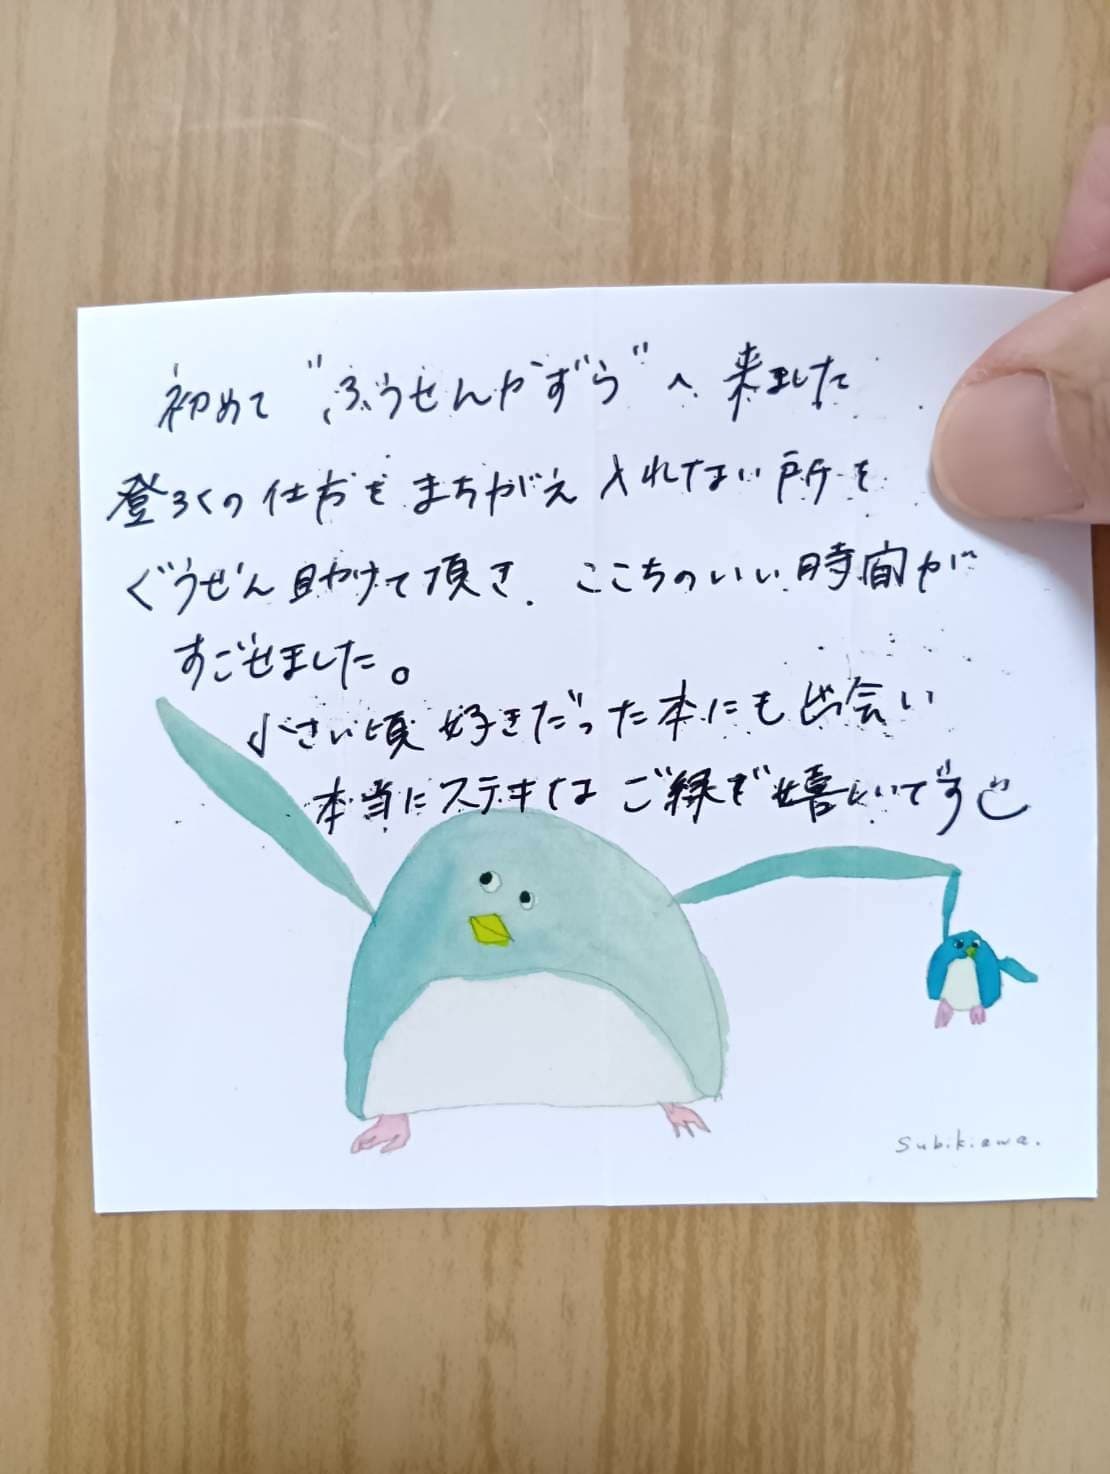 初めて "ふうせんかずら" へ来ました
登ろくの仕方をまちがえ 入れない所を
ぐうぜん助けて頂き. ここちのいい時間が
すごせました。
小さい頃好きだった本にも出会い
本当にステキな ご縁で嬉しいです
subikiawa.